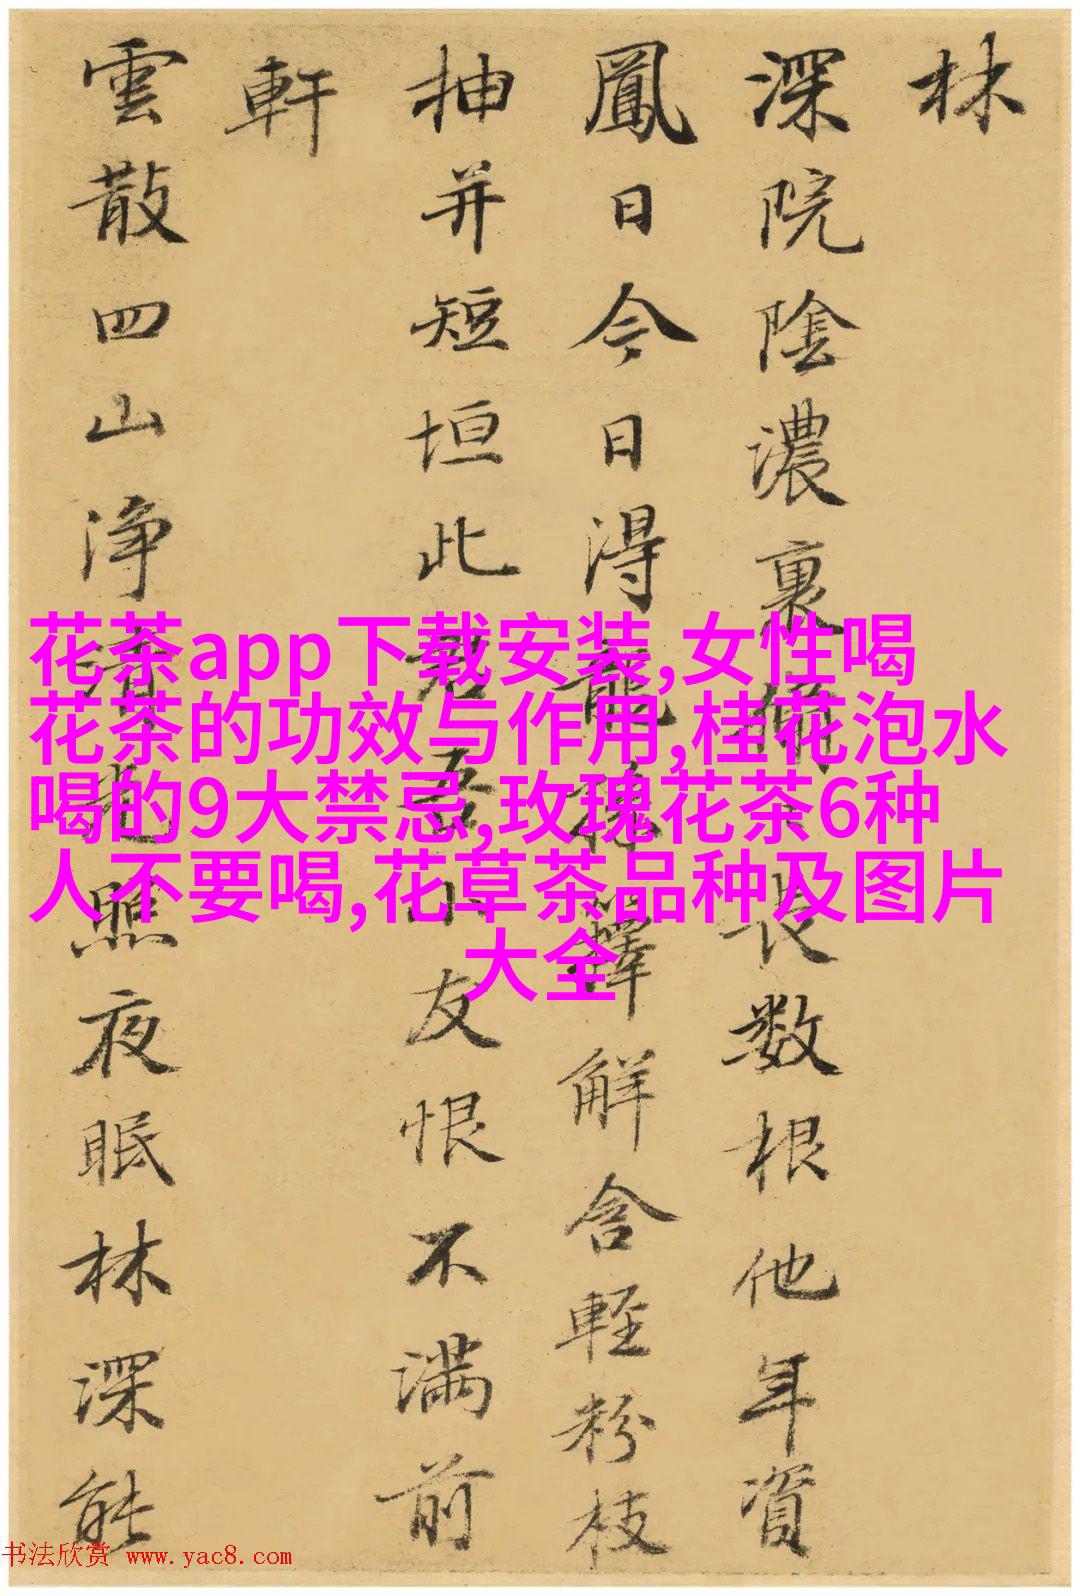 林
深院陰濃裏脩長数根他年資
鳳日今日得龍孫擇解含輕粉枝
抽并短垣此君吾小友恨不满前
軒
雲散四山净清光照夜眠林深能
花茶app下载安装,女性喝
花茶的功效与作用,桂花泡水
喝的9大禁忌,玫瑰花茶6种
人不要喝,花草茶品种及图片
大全
书法欣赏 www.yac8.com